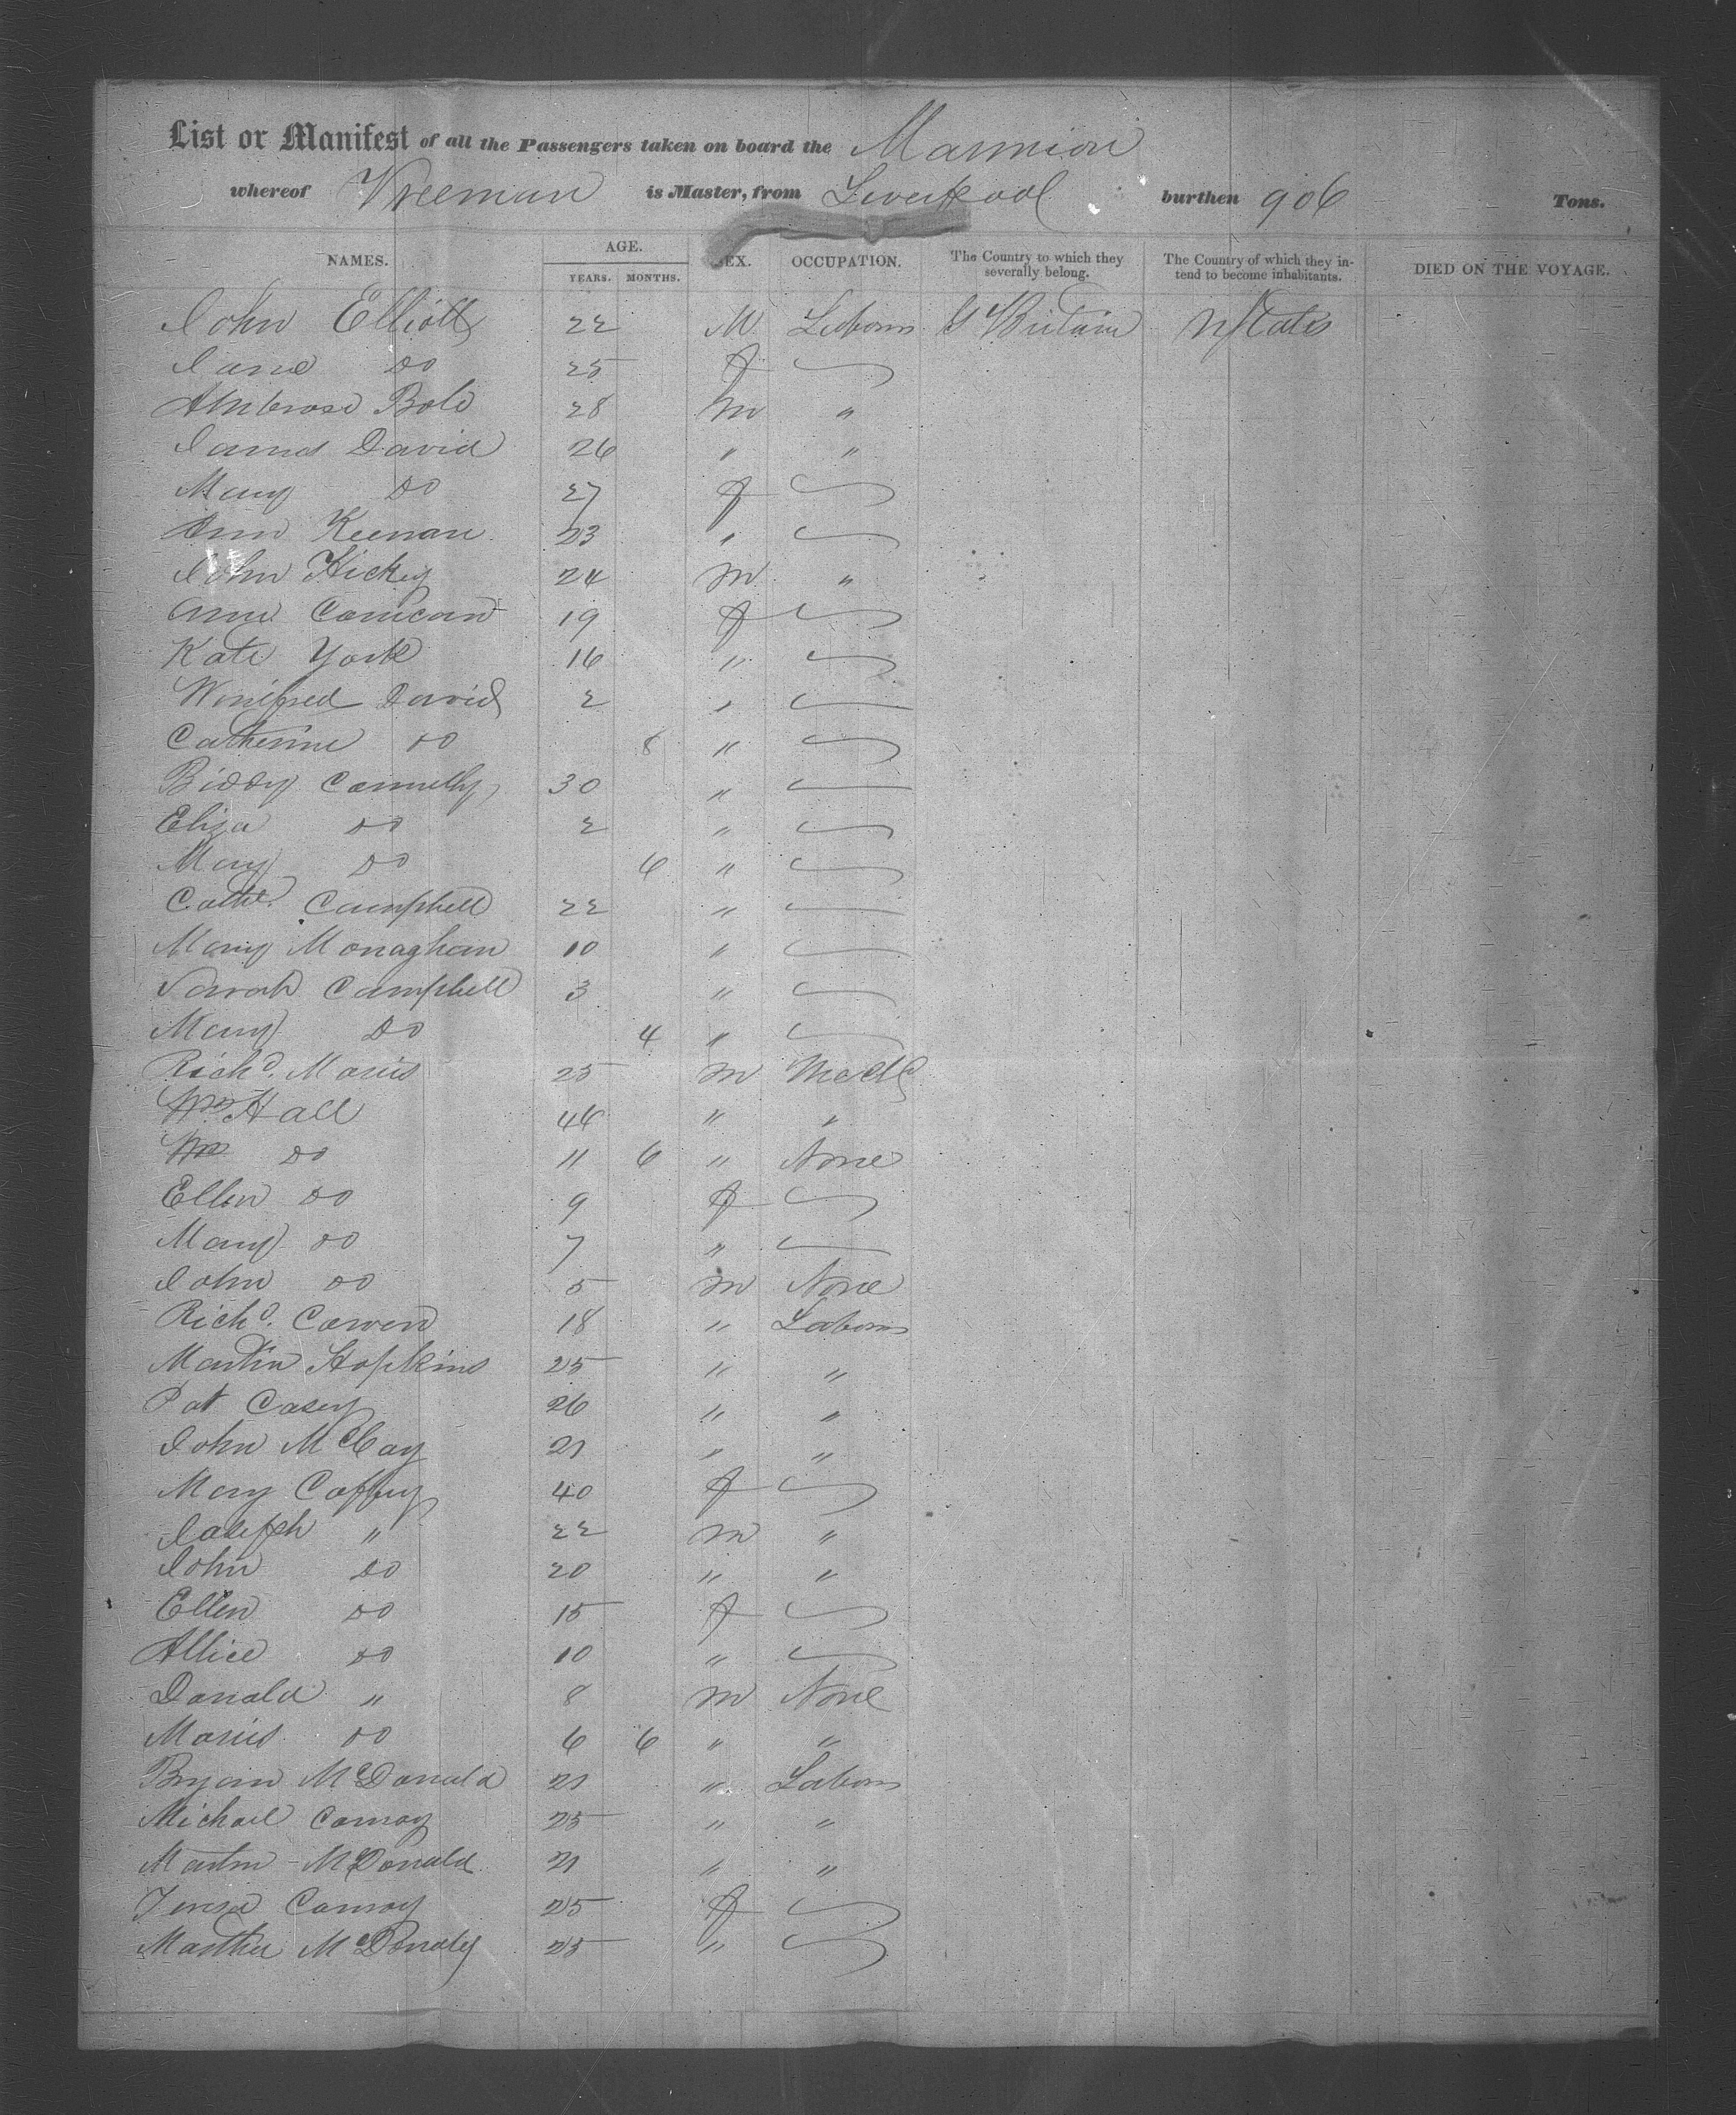 List or Manifest of all the Passengers taken on board the Marmion
whereof Freeman is Master, from Liverpool burthen 906 Tons.
NAMES. AGE. YEARS. MONTHS. SEX. OCCUPATION. The Country to which they severally belong. The Country of which they intend to become inhabitants. DIED ON THE VOYAGE.
John Elliott 22 M Laborer G Britain U States
Jane Do 25 f
Ambrose Bole 28 m "
James David 26 " "
Mary Do 27 f
Ann Keenan 23 "
John Hickey 24 m "
Anne 19 f
Kate York 16 "
Winifred David 2 "
Catherine Do 8 "
Biddy Connelly 30 "
Eliza Do 2 "
Mary Do 6 "
Cathe. Campbell 22 "
Mary Monaghan 10 "
Sarah Campbell 3 "
Mary Do 4 "
Richd. Morris 25 m
Wm Hall 46 " "
Wm Do 11 6 " None
Ellen Do 9 f
Mary Do 7 "
John Do 5 m None
Richd. Cowen 18 " Laborer
Martin Hopkins 25 " "
Pat Casey 26 " "
John McCay 21 " "
Mary Coffey 40 f
Joseph " 22 m "
John Do 20 " "
Ellen Do 15 f
Allice Do 10 "
Donald " 8 m None
Morris Do 6 6 " "
Bryan McDonald 21 " Laborer
Michael Conroy 25 " "
Martin McDonald 21 " "
Teresa Conroy 25 f
Martha McDonald 25 "